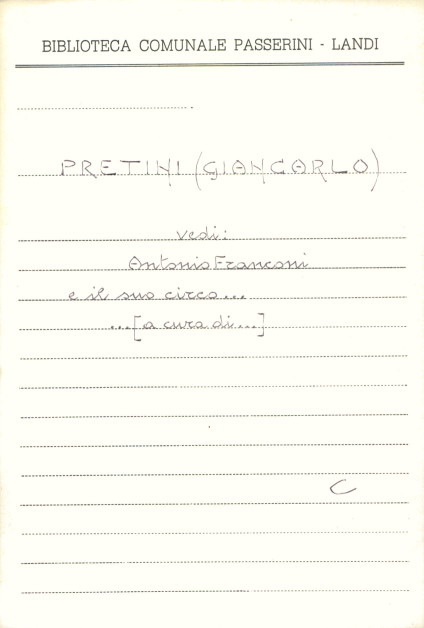 BIBLIOTECA COMUNALE PASSERINI - LANDI
PRETINI (GIANCARLO)
vedi:
Antonio Franconi
e il suo circo...
...[a cura di...]
C